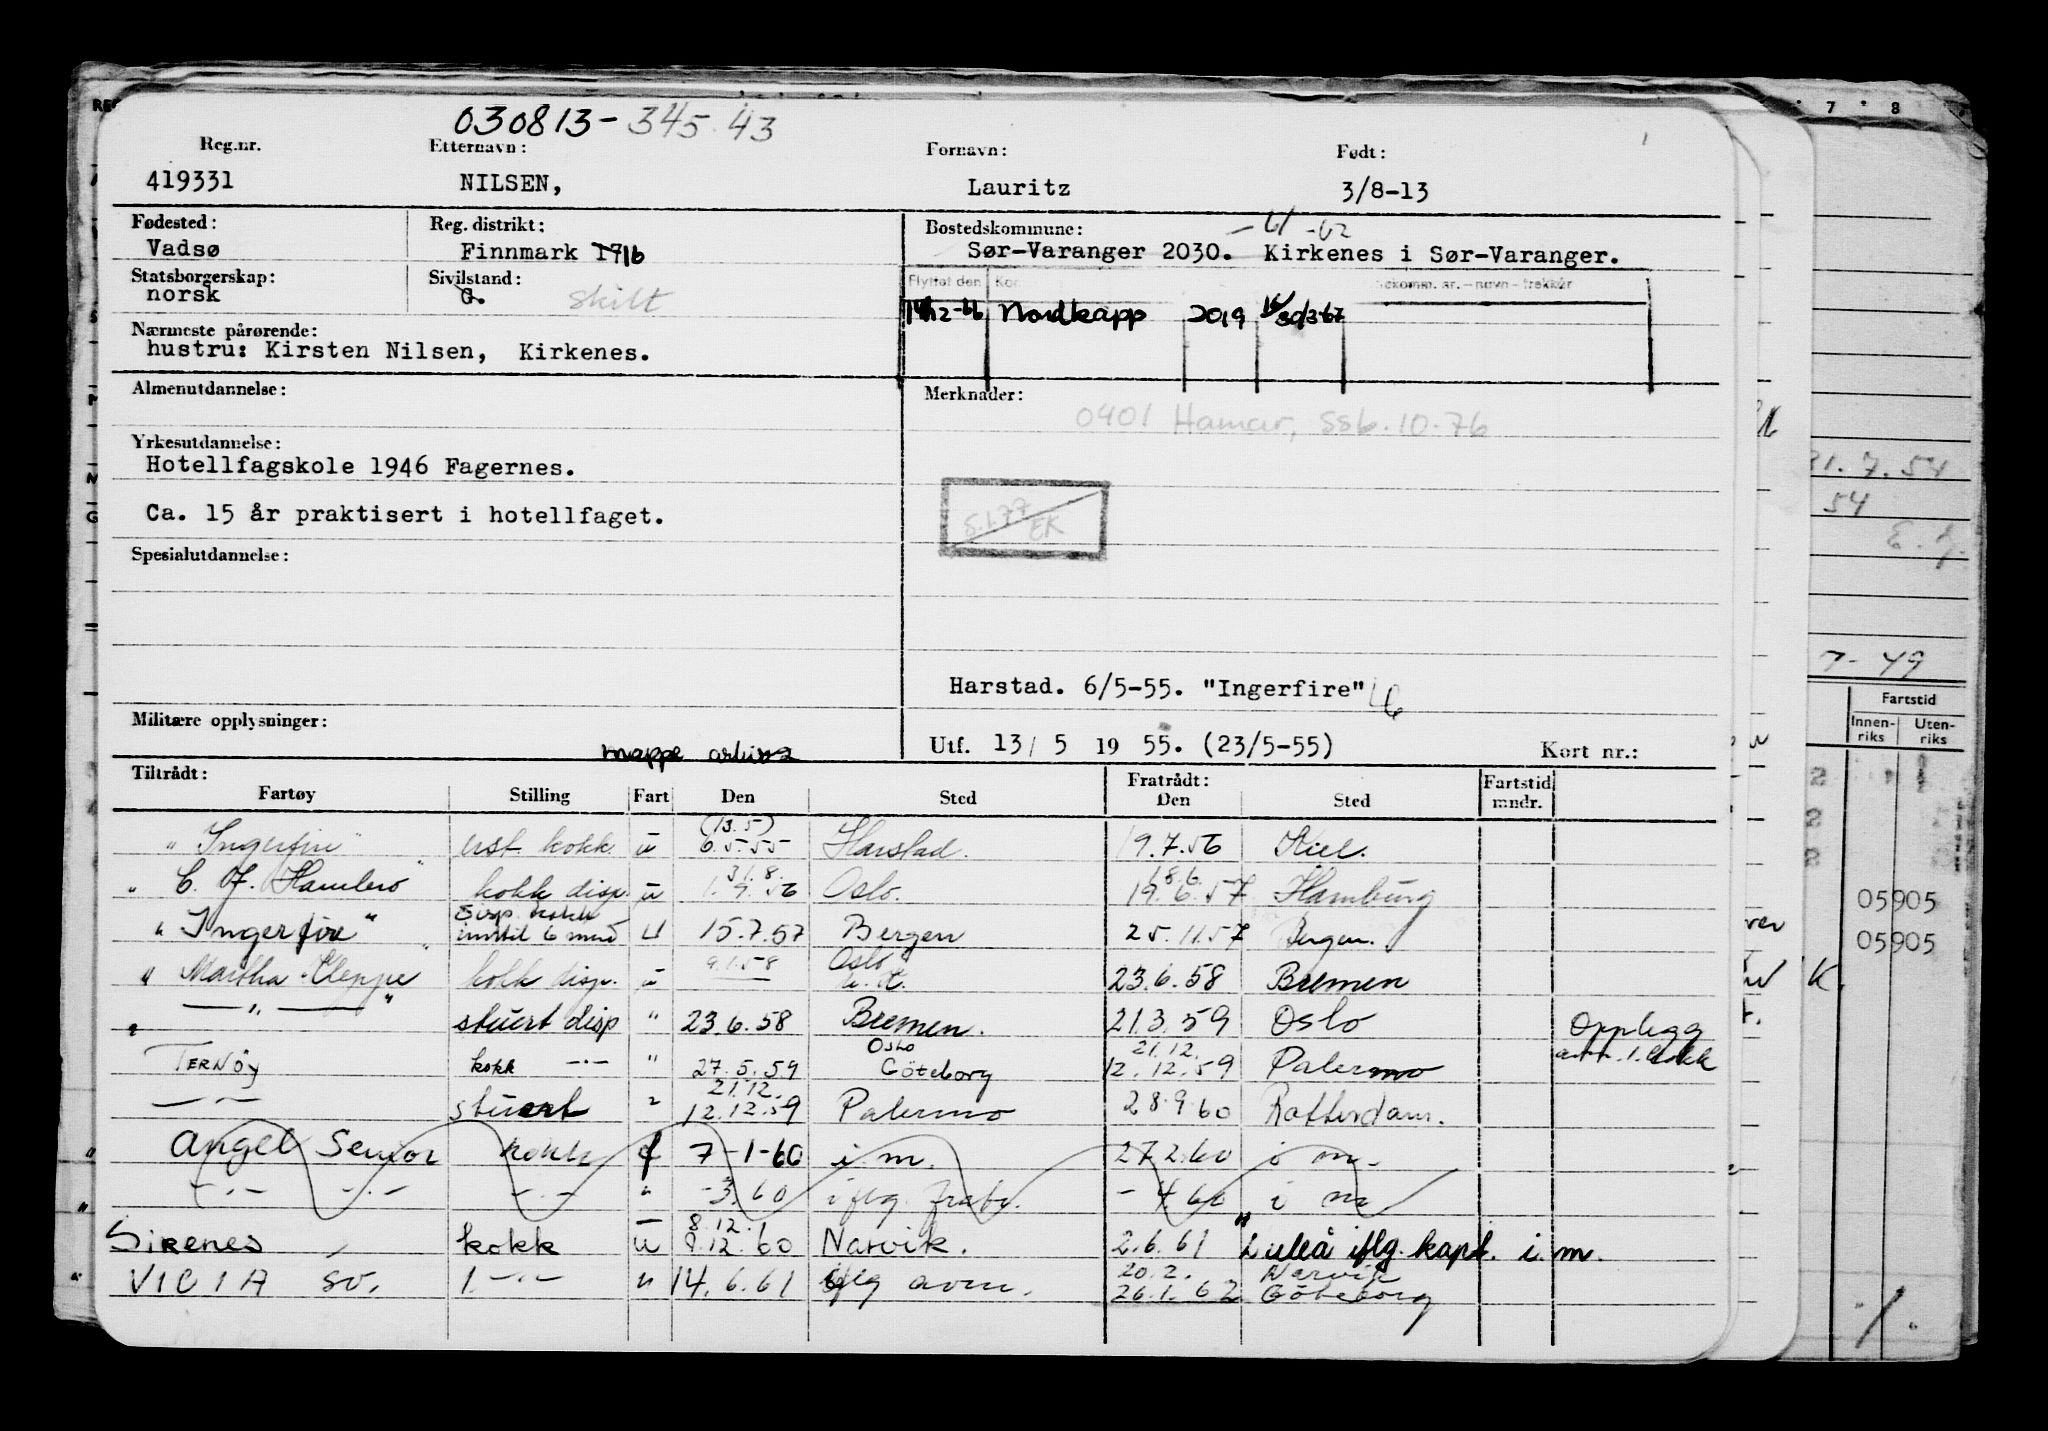 030813-345.43
Reg.nr. Etternavn: Fornavn: Født:
419331 NILSEN, Lauritz 3/8-13
Fødested: Reg. distrikt: Bostedskommune: 61 -62
Vadsø Finnmark Sør-Varanger 2030. Kirkenes i Sør-Varanger.
Statsborgerskap: Sivilstand: Flyttet den
norsk G. skilt
Nordkapp 2019
Nærmeste pårørende:
hustru: Kirsten Nilsen, Kirkenes.
Almenutdannelse: Merknader:
0401 Hamar, SSb.10.76
Yrkesutdannelse:
Hotellfagskole 1946 Fagernes.
5.1.77 EK
Ca. 15 år praktisert i hotellfaget.
Spesialutdannelse:
Harstad. 6/5-55. "Ingerfire"
Militære opplysninger:
mappe Utf. 13/ 5 19 55. (23/5-55) Kort nr.:
Tiltrådt: Fratrådt: Fartstid
Fartøy Stilling Fart Den Sted Den Sted mndr.
(13.5)
"Ingerfire" kokk u 6.5.55 Harstad. 19.7.56 Kiel.
31.8. 18.6.
" C. J. Hambro" kokk disp. u 1.9.56 Oslo. 19.6.57 Hamburg
disp. kokk
" Ingerfire" inntil 6 mnd u 15.7.57 Bergen 25.11.57 Bergen.
9.1.58 Oslo
" Martha Kleppe kokk disp. u 23.6.58 Bremen
" — " — " stuert disp " 23.6.58 Bremen. 21.3.59 Oslo Opplegg
Oslo 21.12. 1. kokk
TERNØY kokk —·— " 27.5.59 Göteborg 12.12.59 Palermo
21.12.
—·— stuert " 12.12.59 Palermo 28.9.60 Rotterdam.
" Angel Senior kokk f 7-1-60 i.m. 27.2.60 i m.
" —·— —·— —·— " -3.60 iflg. - 4.60 i m
8.12.
Sirenes kokk u 9.12.60 Narvik. 2.6.61 Luleå iflg. kapt. i.m.
20.2. Narvik
" VICIA sv. 1 —·— " 14.6.61 iflg avm. 26.1.62 Göteborg
7 8
21.7.54
54
7-49
Fartstid
Innenriks Utenriks
2
2
2
05905
05905
K.